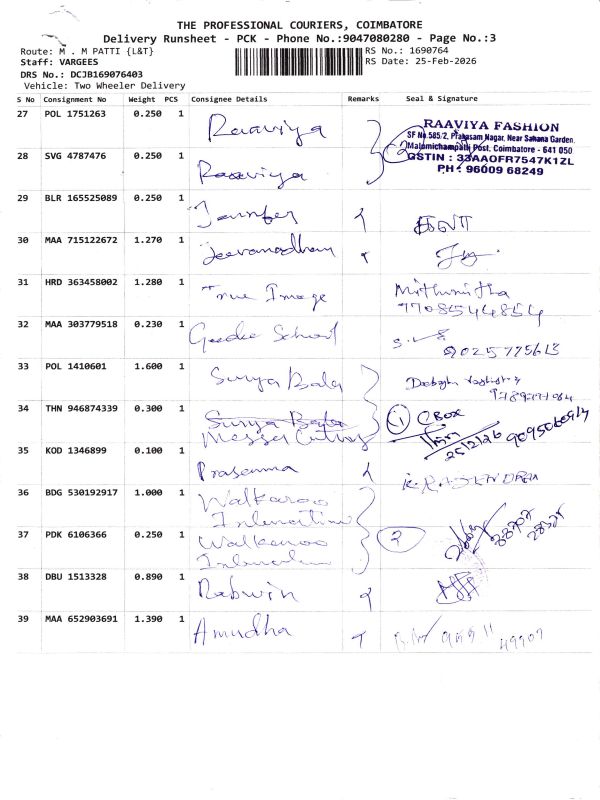 THE PROFESSIONAL COURIERS, COIMBATORE
Delivery Runsheet - PCK - Phone No.:9047080280 - Page No.:3
Route: M . M PATTI {L&T} RS No.: 1690764
Staff: VARGEES RS Date: 25-Feb-2026
DRS No.: DCJB169076403
Vehicle: Two Wheeler Delivery
S No Consignment No Weight PCS Consignee Details Remarks Seal & Signature
27 POL 1751263 0.250 1 Raaviya
RAAVIYA FASHION
SF No.585/2, Prakasam Nagar, Near Sahana Garden.
Malumichampatti Post, Coimbatore - 641 050
GSTIN : 33AAOFR7547K1ZL
PH : 96009 68249
28 SVG 4787476 0.250 1 Raaviya
29 BLR 165525089 0.250 1 Jennifer
30 MAA 715122672 1.270 1 Jeevanadham
31 HRD 363458002 1.280 1 True Image Mithunitha
7708544854
32 MAA 303779518 0.230 1 School
9025775613
33 POL 1410601 1.600 1 Surya Bala
34 THN 946874339 0.300 1 Surya Bala 1 CBox
Messer Cutting 25/2/26
35 KOD 1346899 0.100 1 Prasanna
36 BDG 530192917 1.000 1 Walkaroo
International
37 PDK 6106366 0.250 1 Walkaroo 2
International
38 DBU 1513328 0.890 1 Rabwin
39 MAA 652903691 1.390 1 Amudha